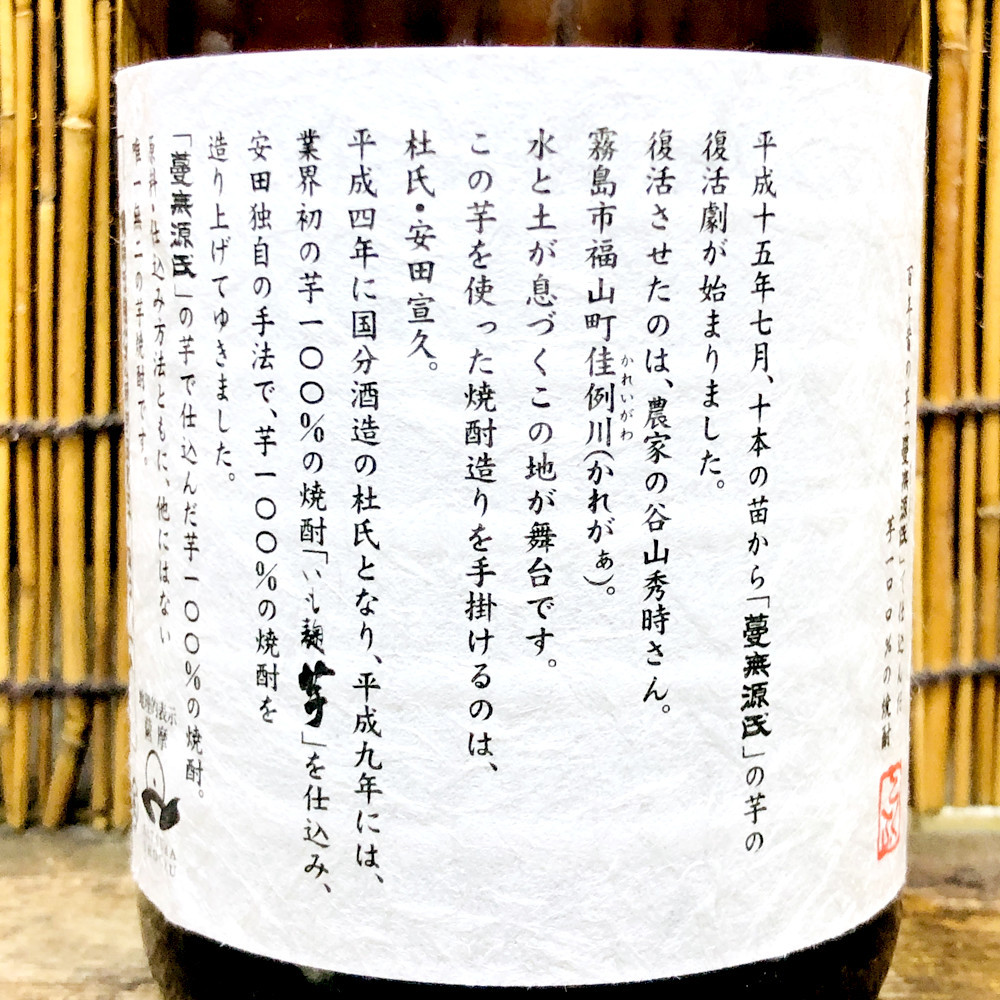 芋一〇〇%の焼酎
平成十五年七月、十本の苗から「蔓無源氏」の芋の
復活劇が始まりました。
復活させたのは、農家の谷山秀時さん。
霧島市福山町佳例川(かれがぁ)。
かれいがわ
水と土が息づくこの地が舞台です。
この芋を使った焼酎造りを手掛けるのは、
杜氏・安田宣久。
平成四年に国分酒造の杜氏となり、平成九年には、
業界初の芋一〇〇%の焼酎「いも麹芋」を仕込み、
安田独自の手法で、芋一〇〇%の焼酎を
造り上げてゆきました。
「蔓無源氏」の芋で仕込んだ芋一〇〇%の焼酎。
原料・仕込み方法ともに、他にはない
唯一無二の芋焼酎です。
地理的表示
薩摩